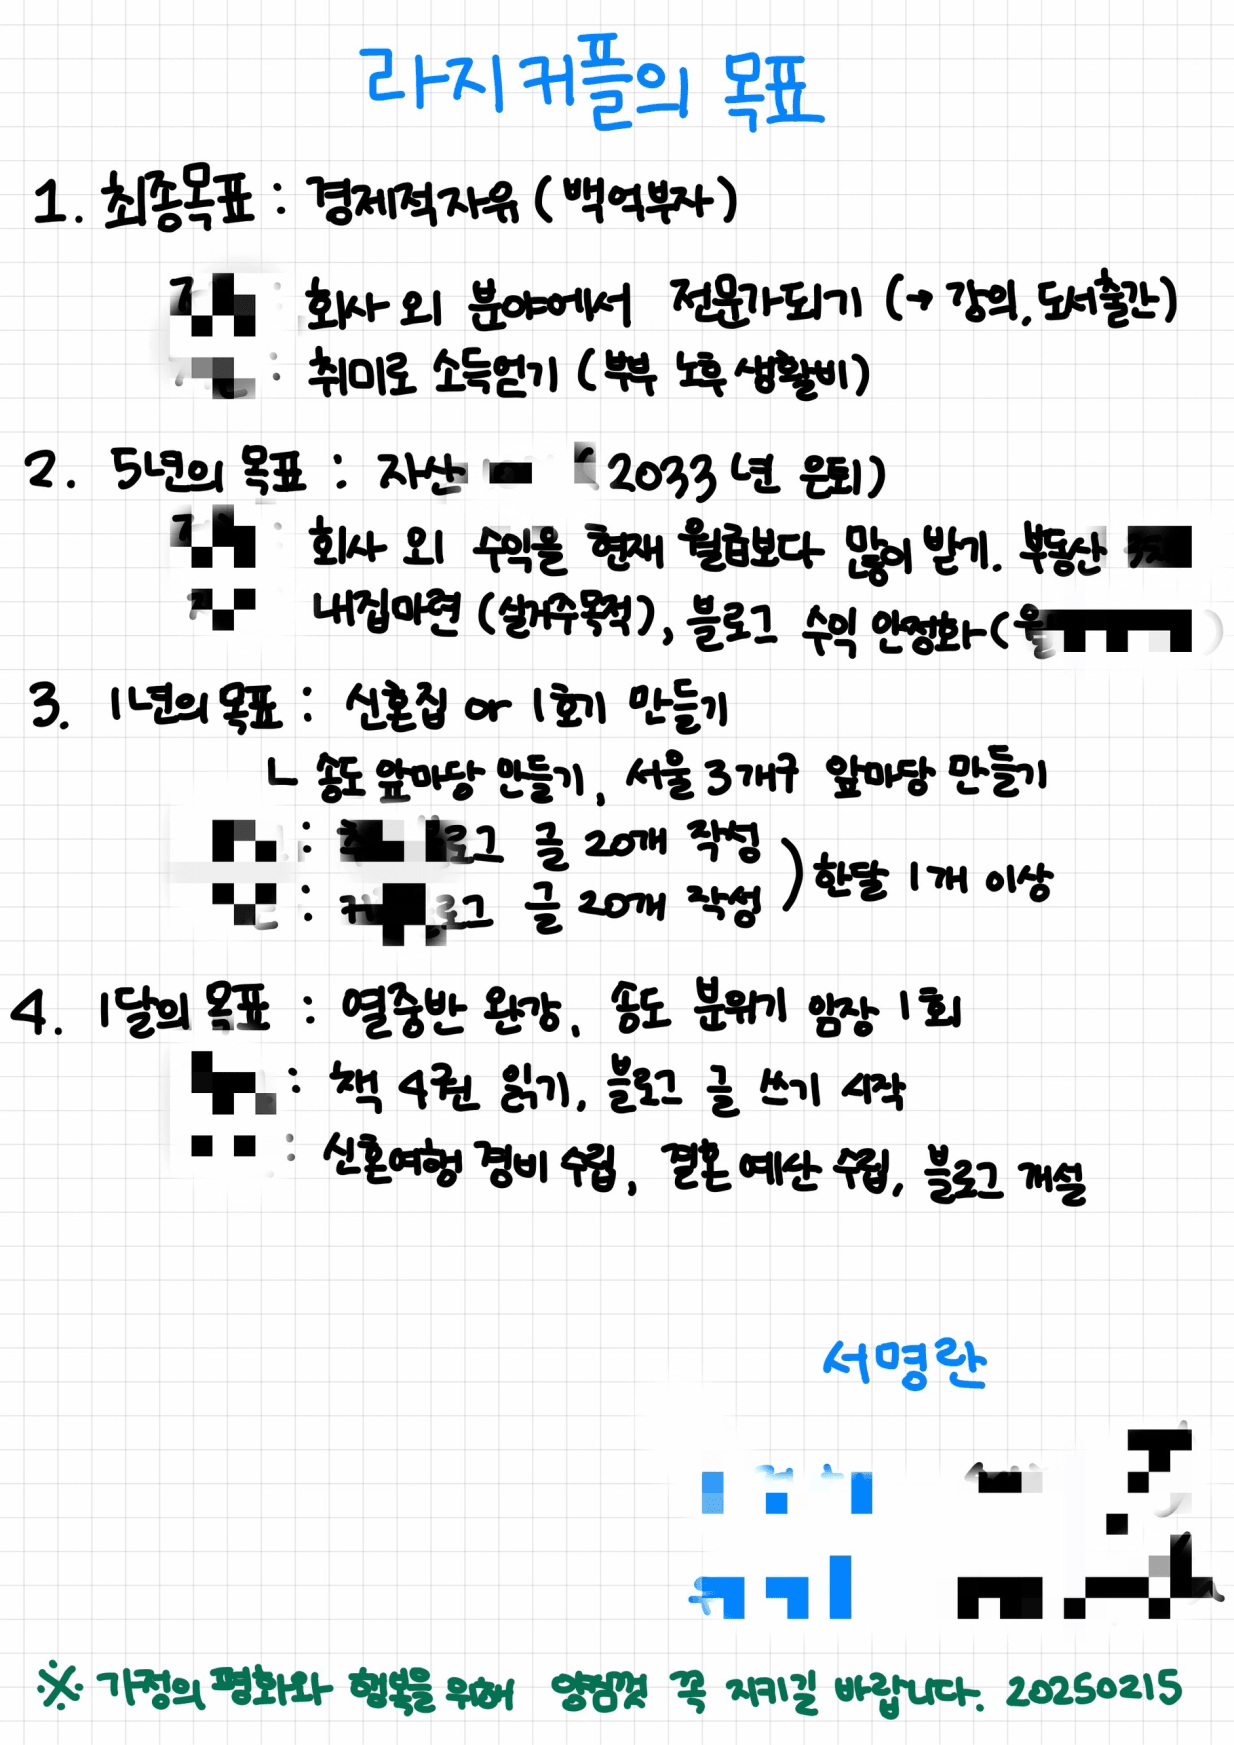 라지커플의 목표
1. 최종목표 : 경제적자유 (백억부자)
: 회사 외 분야에서 전문가되기 (→ 강의, 도서출간)
: 취미로 소득얻기 (부부 노후 생활비)
2. 5년의 목표 : 자산 (2033년 은퇴)
: 회사 외 수익을 현재 월급보다 많이 받기. 부동산
내집마련 (실거주목적), 블로그 수익 안정화 (월 )
3. 1년의 목표 : 신혼집 or 1호기 만들기
ㄴ 송도 앞마당 만들기, 서울 3개구 앞마당 만들기
: 글 20개 작성
) 한달 1개 이상
: 글 20개 작성
4. 1달의 목표 : 열중반 완강, 송도 분위기 임장 1회
: 책 4권 읽기, 블로그 글 쓰기 시작
: 신혼여행 경비 수립, 결혼 예산 수립, 블로그 개설
서명란
※ 가정의 평화와 행복을 위해 양심껏 꼭 지키길 바랍니다. 20250215